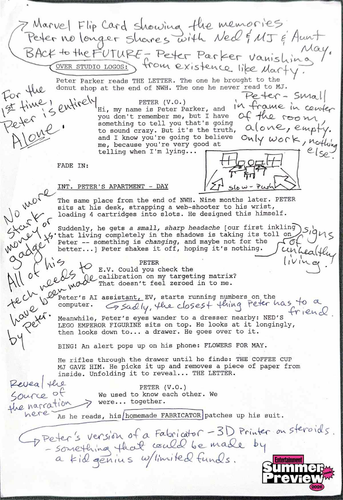 Marvel Flip Card showing the memories
Peter no longer shares with Ned & MJ & Aunt May.
BACK to the FUTURE - Peter Parker vanishing
from existence like Marty.
OVER STUDIO LOGOS:
Peter Parker reads THE LETTER. The one he brought to the
donut shop at the end of NWH. The one he never read to MJ.
For the
1st time,
Peter is entirely
Alone.
PETER (V.O.)
Hi, my name is Peter Parker, and
you don't remember me, but I have
something to tell you that's going
to sound crazy. But it's the truth,
and I know you're going to believe
me, because you're very good at
telling when I'm lying...
Peter - small
in frame in center
of the room,
alone, empty.
Only work, nothing
else.
FADE IN:
slow-push
INT. PETER'S APARTMENT - DAY
The same place from the end of NWH. Nine months later. PETER
sits at his desk, strapping a web-shooter to his wrist,
loading 4 cartridges into slots. He designed this himself.
No more
Stark
money or
gadgets.
All of his
tech needs to
have been made
by Peter.
Suddenly, he gets a small, sharp headache [our first inkling
that living completely in the shadows is taking its toll on
Peter -- something is changing, and maybe not for the
better...] Peter shakes it off, hoping it's nothing.
signs
of
unhealthy
living.
PETER
E.V. Could you check the
calibration on my targeting matrix?
That doesn't feel zeroed in to me.
Peter's AI assistant, EV, starts running numbers on the
computer.
sadly, the closest thing Peter has to a
friend.
Meanwhile, Peter's eyes wander to a dresser nearby: NED'S
LEGO EMPEROR FIGURINE sits on top. He looks at it longingly,
then looks down to... a drawer. He goes over to it.
BING! An alert pops up on his phone: FLOWERS FOR MAY.
He rifles through the drawer until he finds: THE COFFEE CUP
MJ GAVE HIM. He picks it up and removes a piece of paper from
inside. Unfolding it to reveal... THE LETTER.
Reveal the
source of
the narration
here
PETER (V.O.)
We used to know each other. We
were... together.
As he reads, his homemade FABRICATOR patches up his suit.
Peter's version of a Fabricator - 3D Printer on steroids.
- something that could be made by
a kid genius w/limited funds.
Entertainment
Summer
Preview